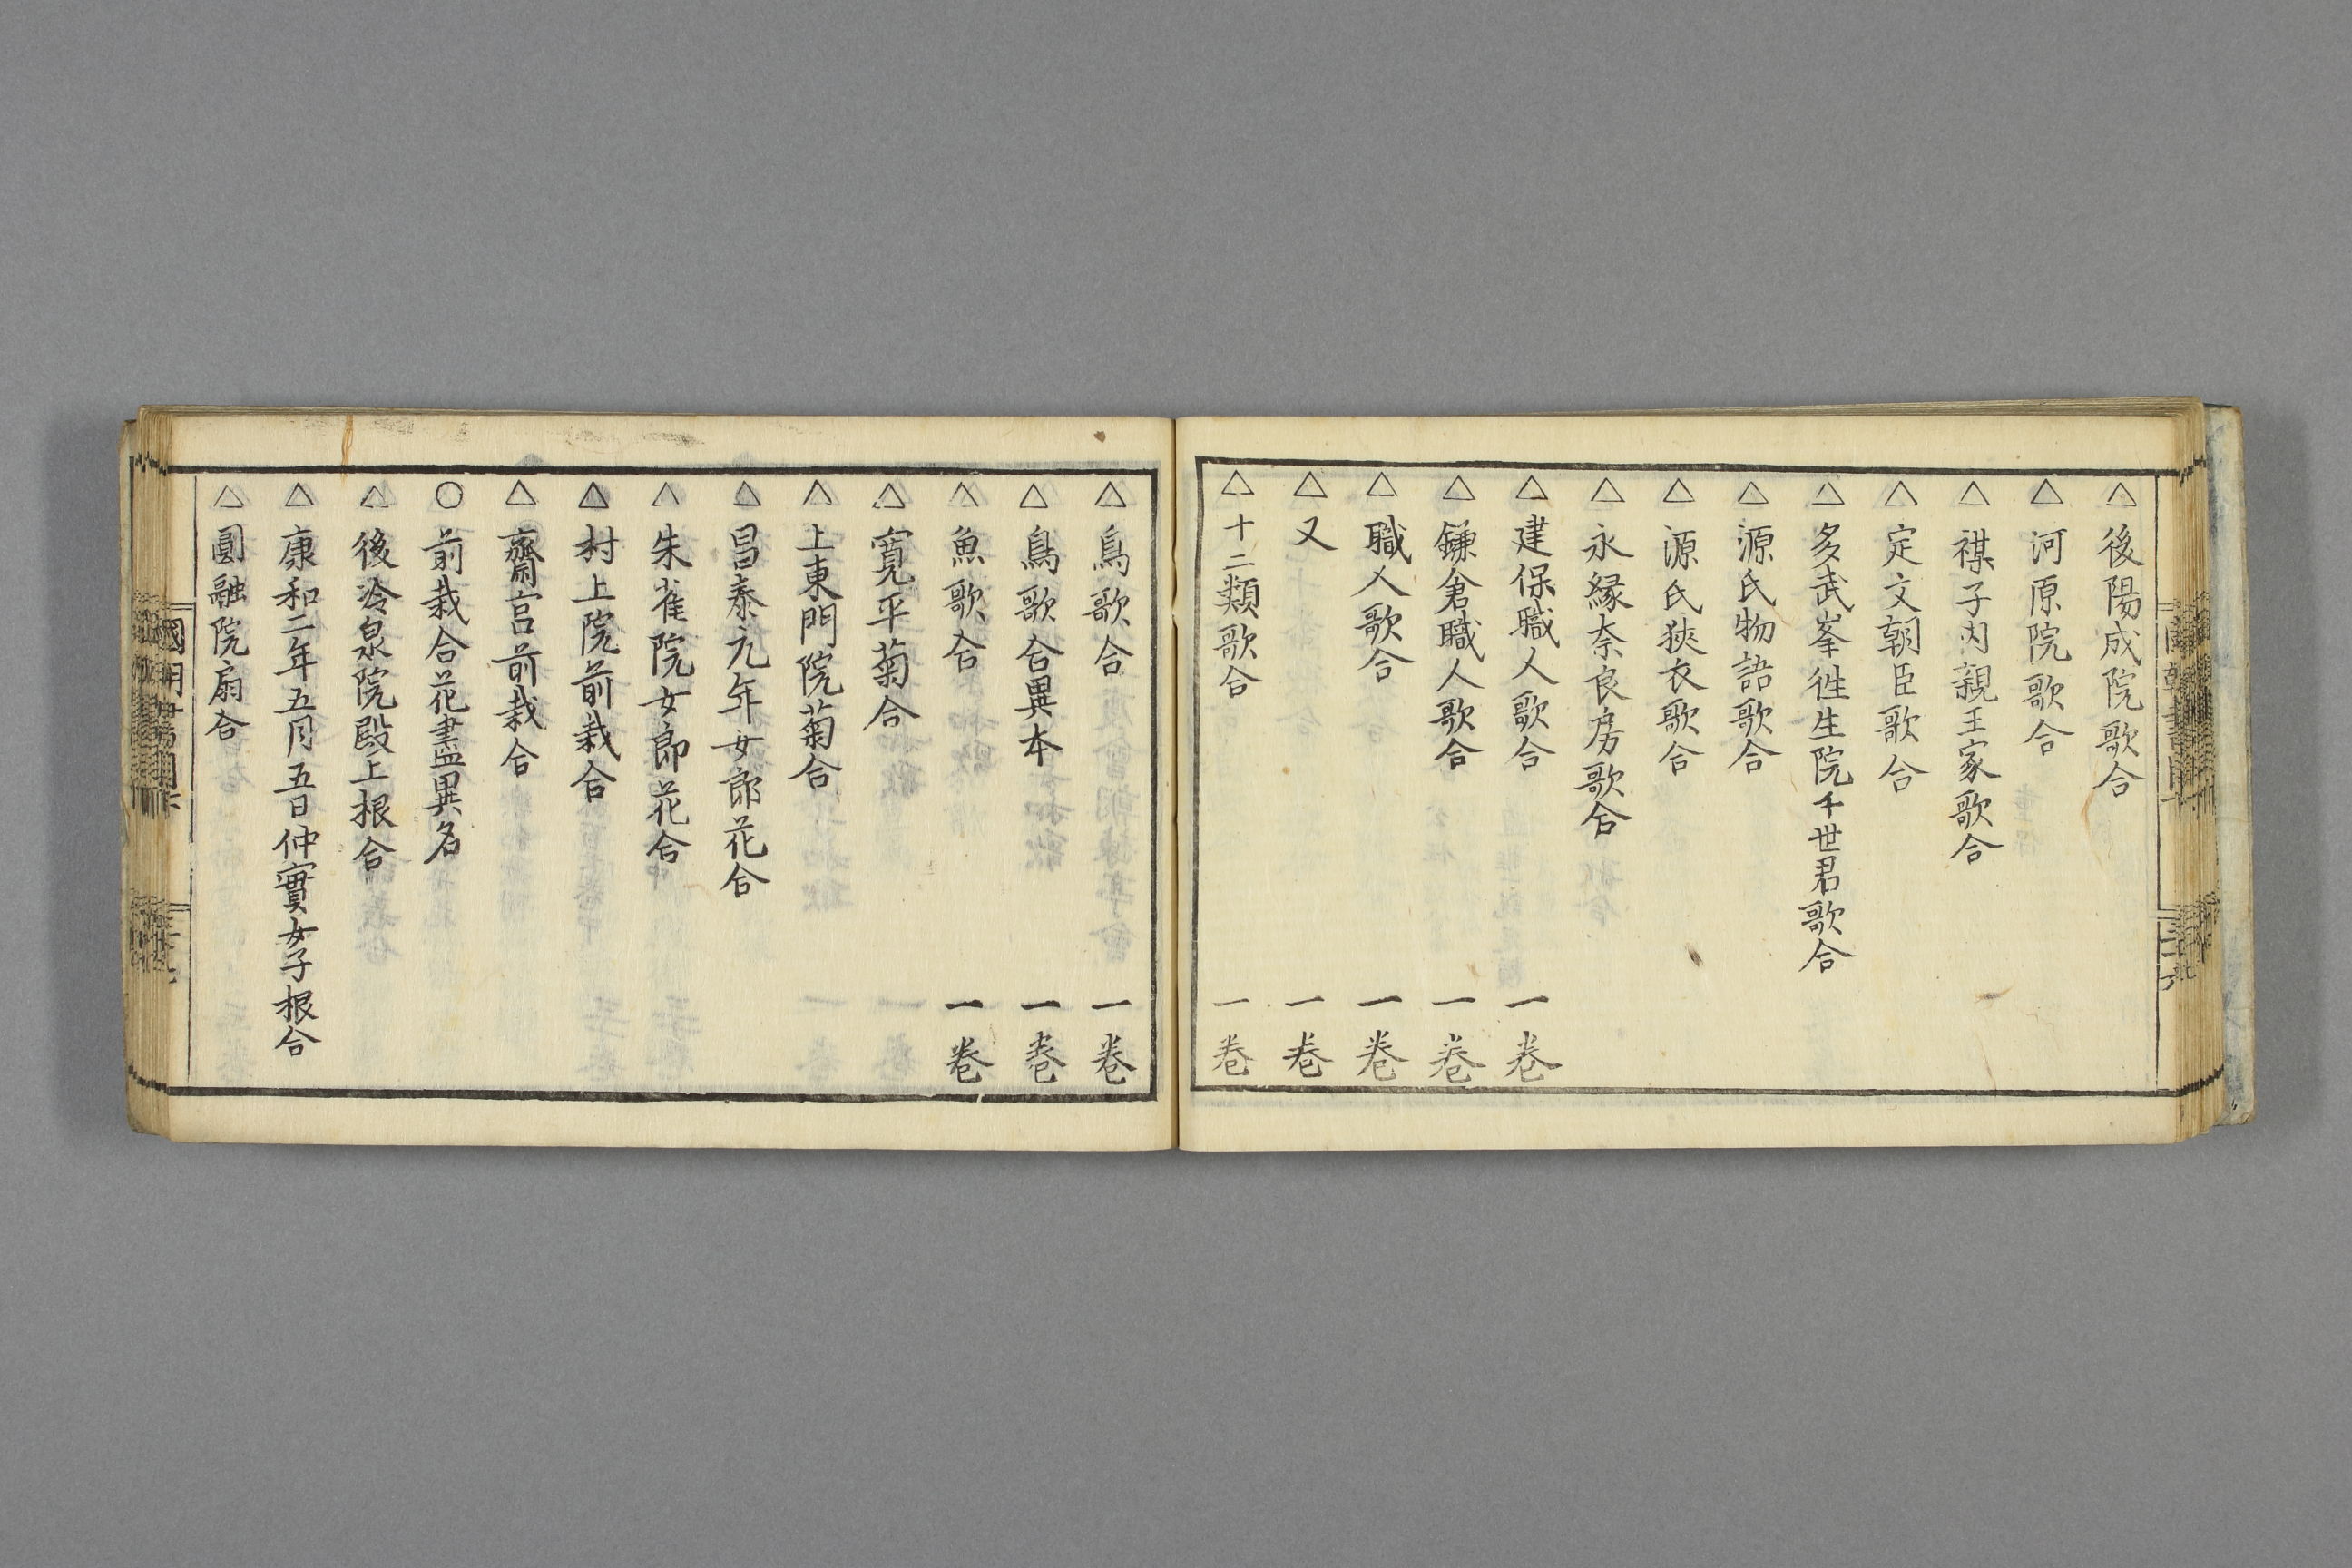 △後陽成院歌合
△河原院歌合
△禖子内親王家歌合
△定文朝臣歌合
△多武峯徃生院千世君歌合
△源氏物語歌合
△源氏狹衣歌合
△永縁奈良房歌合
△建保職人歌合 一巻
△鎌倉職人歌合 一巻
△職人歌合 一巻
△又 一巻
△十二類歌合 一巻
△鳥歌合 一巻
△鳥歌合異本 一巻
△魚歌合 一巻
△寛平菊合
△上東門院菊合
△昌泰元年女郎花合
△朱雀院女郎花合
△村上院前栽合
△齋宮前栽合
○前栽合花盡異名
△後冷泉院殿上根合
△康和二年五月五日仲實女子根合
△圓融院扇合